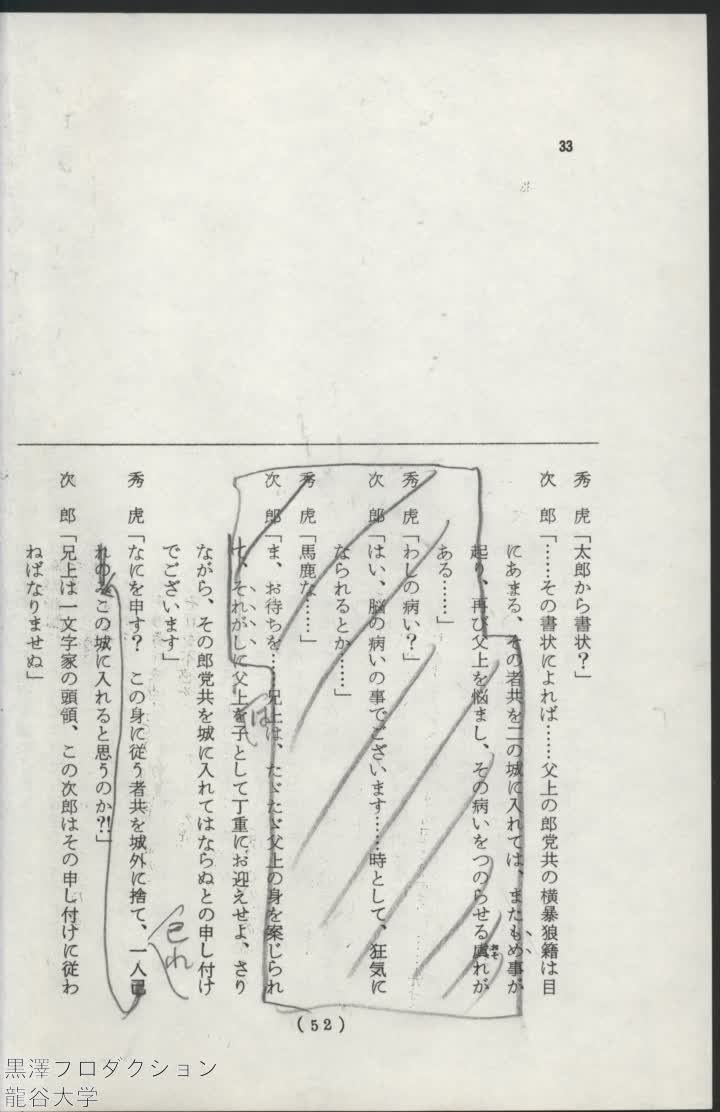 33
秀　虎「太郎から書状？」
次　郎「……その書状によれば……父上の郎党共の横暴狼籍は目
にあまる、その者共を二の城に入れては、またもめ事が
起り、再び父上を悩まし、その病いをつのらせる虞れが
おそ
ある……」
秀　虎「わしの病い？」
次　郎「はい、脳の病いの事でございます……時として、狂気に
なられるとか……」
秀　虎「馬鹿な……」
次　郎「ま、お待ちを……兄上は、たゞたゞ父上の身を案じられ
て、それがしに父上を子として丁重にお迎えせよ、さり
は
ながら、その郎党共を城に入れてはならぬとの申し付け
でございます」
秀　虎「なにを申す？　この身に従う者共を城外に捨て、一人己
己れ
れのみこの城に入れると思うのか⁈」
次　郎「兄上は一文字家の頭領、この次郎はその申し付けに従わ
ねばなりませぬ」
(52)
黒澤プロダクション
龍谷大学